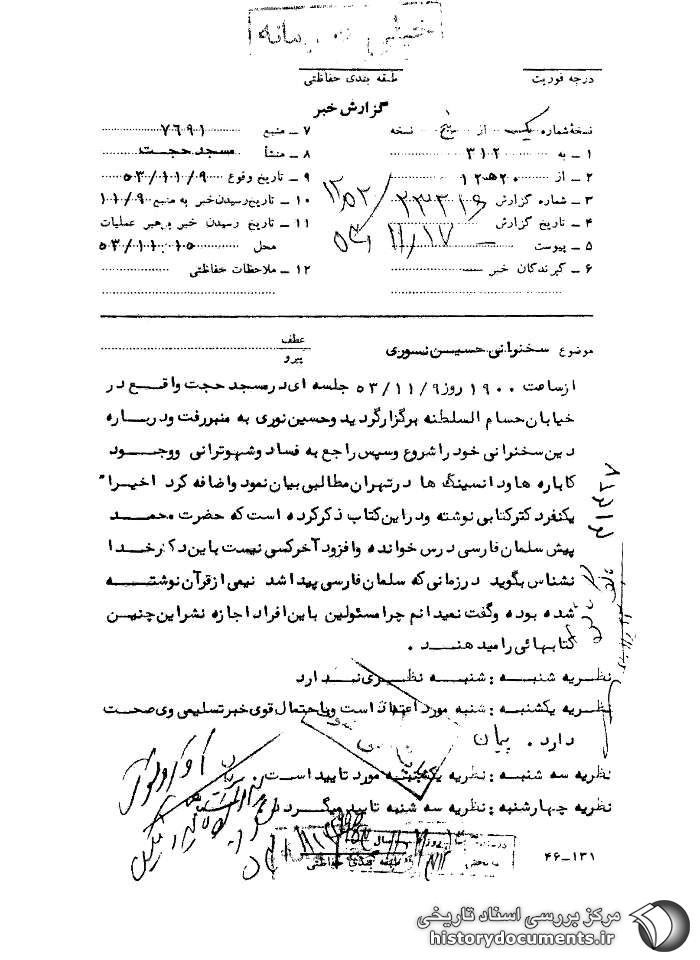 خیلی محرمانه
درجه فوریت
طبقه بندی حفاظتی
گزارش خبر
نسخهٔ شماره یک از پنج نسخه
۱ ـ به ۳۱۲
۲ ـ از ۲۰هـ۱۲
۳ ـ شماره گزارش ۲۳۲۱۶
۴ ـ تاریخ گزارش ۵۳/۱۱/۱۷
۵ ـ پیوست
۶ ـ گیرندگان خبر
۷ ـ منبع ۷۶۹۱
۸ ـ منشأ مسجد حجت
۹ ـ تاریخ وقوع ۵۳/۱۱/۹
۱۰ ـ تاریخ رسیدن خبر به منبع ۱۱/۹
۱۱ ـ تاریخ رسیدن خبر به رهبر عملیات
محل ۵۳/۱۱/۱۵
۱۲ ـ ملاحظات حفاظتی
موضوع سخنرانی حسین نوری
عطف
پیرو
از ساعت ۱۹۰۰ روز ۵۳/۱۱/۹ جلسه ای در مسجد حجت واقع در
خیابان حسام السلطنه برگزار گردید و حسین نوری به منبر رفت و درباره
دین سخنرانی خود را شروع و سپس راجع به فساد و شهوترانی و وجود
کاباره ها و دانسینگ ها در تهران مطالبی بیان نمود و اضافه کرد اخیراً
یکنفر دکتر کتابی نوشته و در این کتاب ذکر کرده است که حضرت محمد
پیش سلمان فارسی درس خوانده و افزود آخر کسی نیست باین دکتر خدا
نشناس بگوید در زمانی که سلمان فارسی پیدا شد نیمی از قرآن نوشته
شده بوده و گفت نمیدانم چرا مسئولین باین افراد اجازه نشر این چنین
کتابهائی را میدهند .
نظریه شنبه : شنبه نظری ندارد
نظریه یکشنبه : شنبه مورد اعتماد است و باحتمال قوی خبر تسلیمی وی صحت
دارد .
نظریه سه شنبه : نظریه یکشنبه مورد تایید است
نظریه چهارشنبه : نظریه سه شنبه تایید میگردد
طبقه بندی حفاظتی
۴۶-۱۳۱
مرکز بررسی اسناد تاریخی
historydocuments.ir